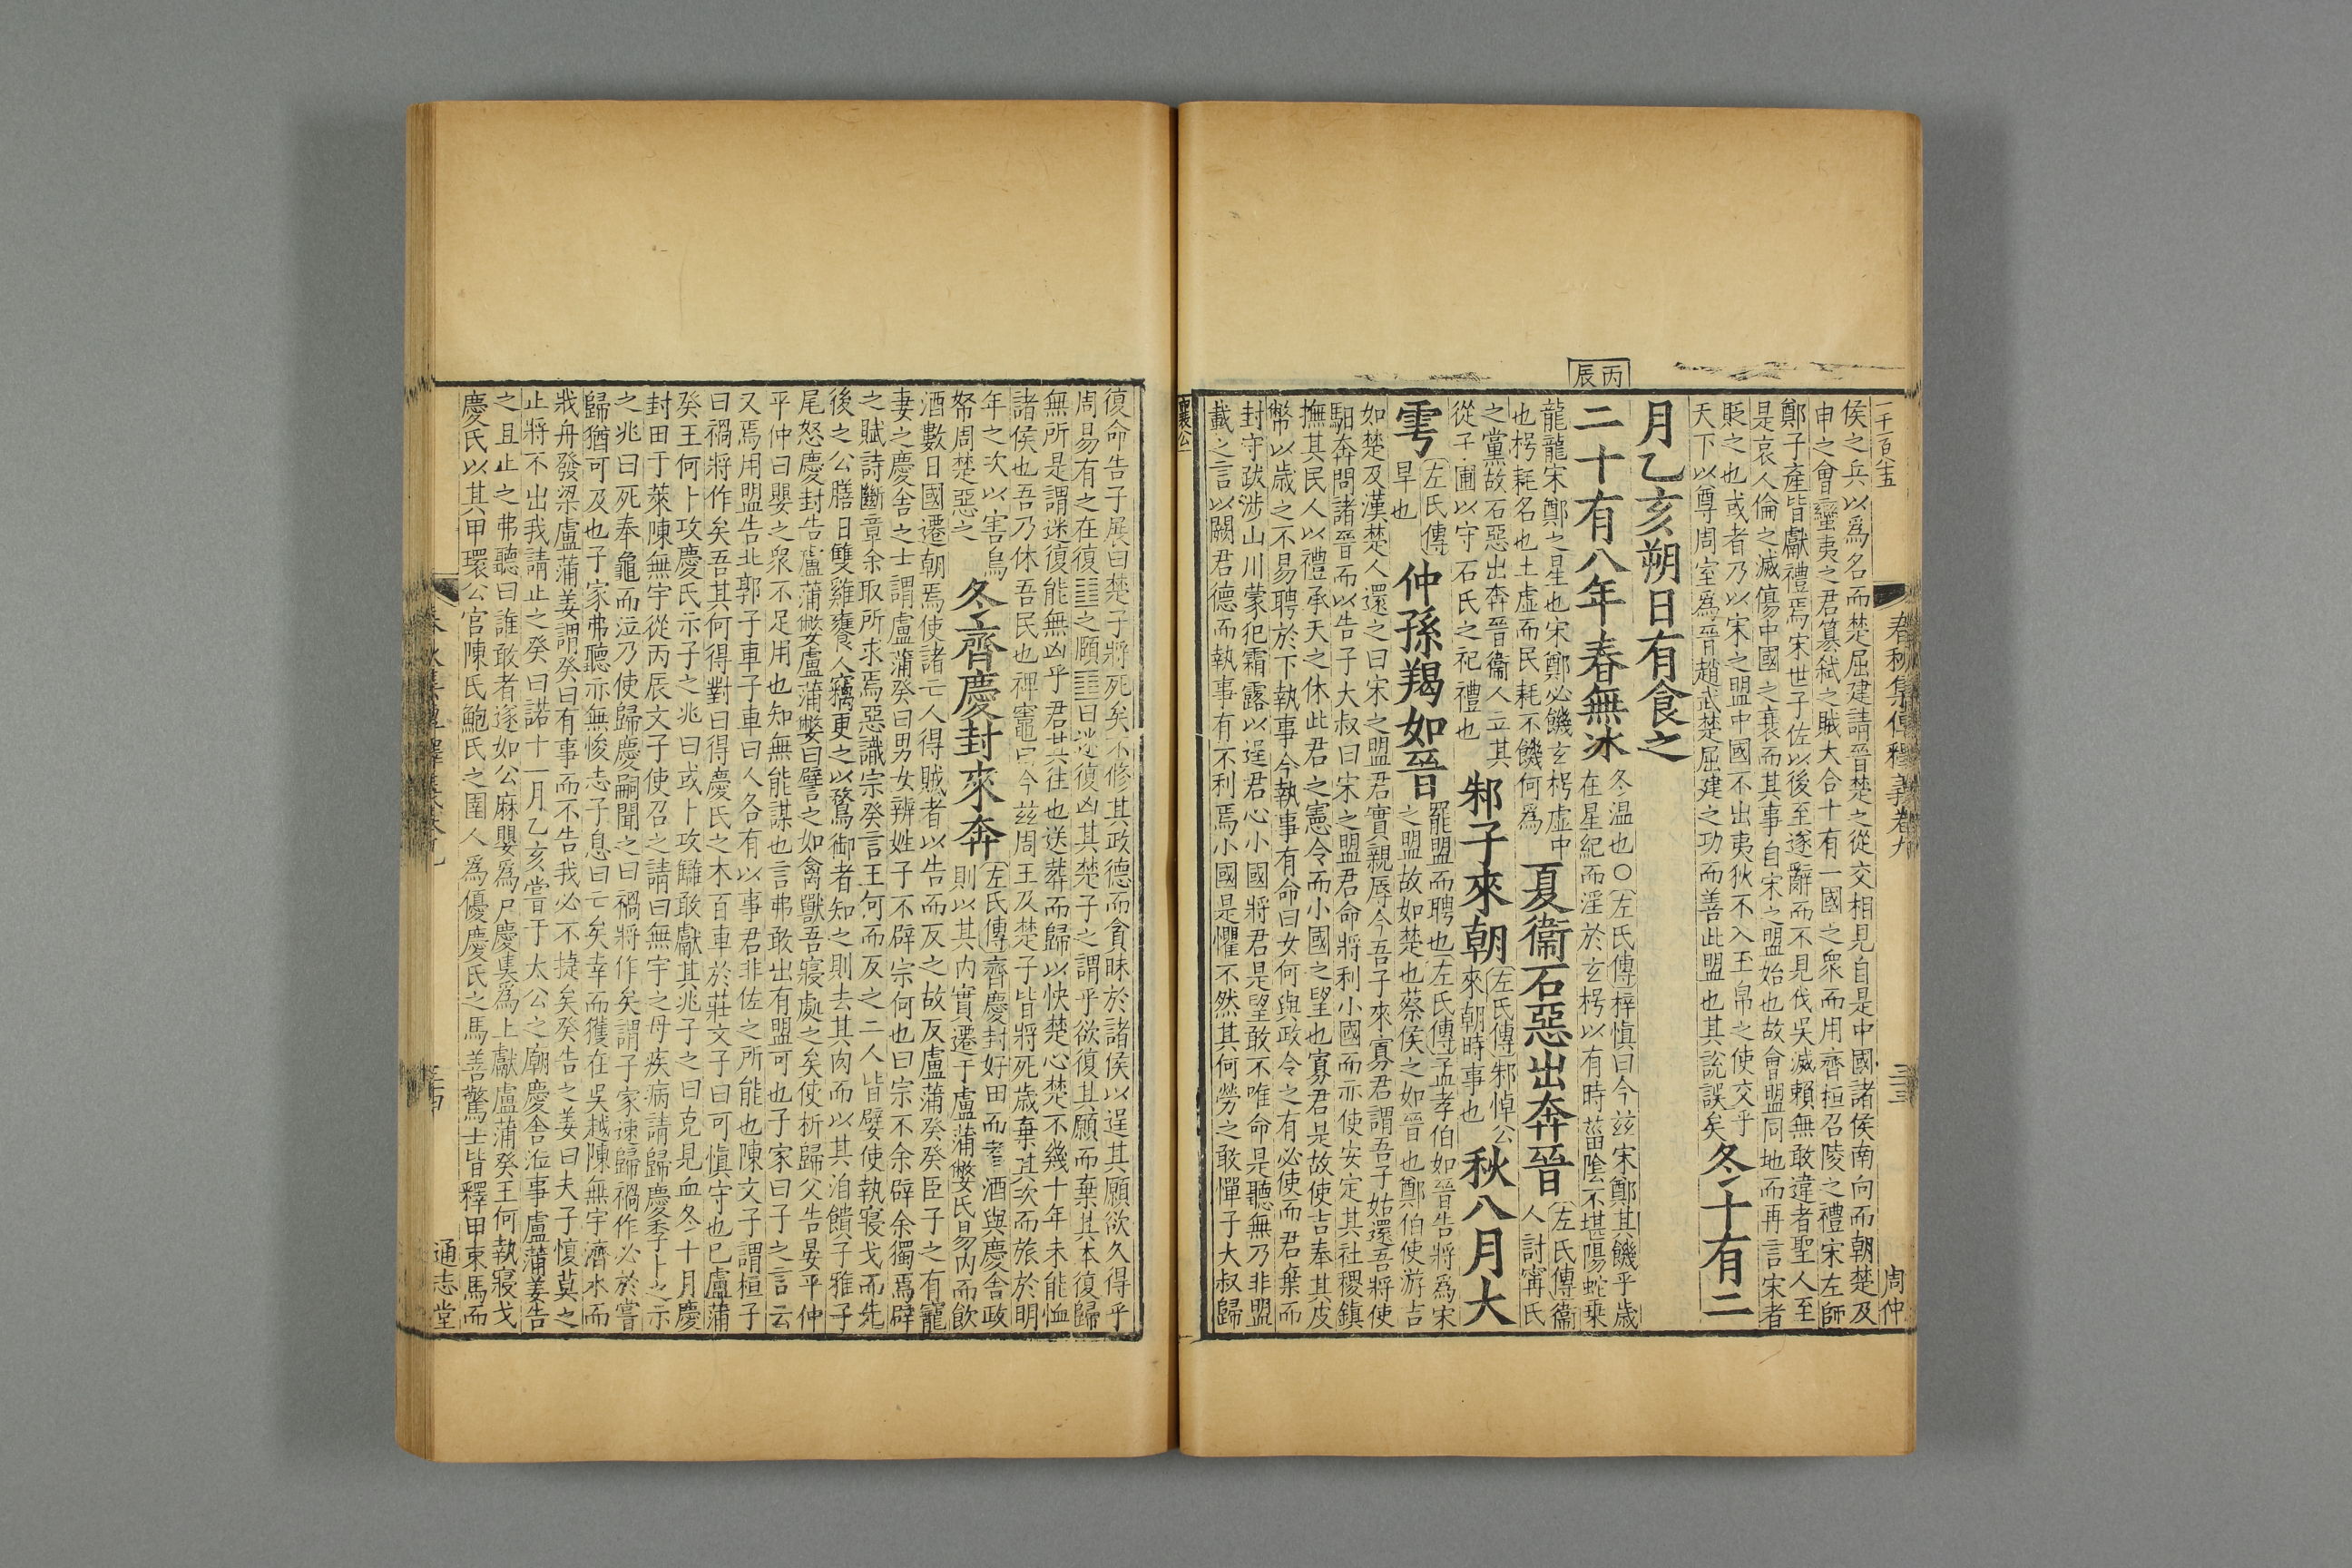 春秋集傳釋義卷九
周仲
侯之兵以爲名而楚屈建請晉楚之從交相見自是中國諸侯南向而朝楚及
申之會蠻夷之君簒弑之賊大合十有一國之衆而用齊桓召陵之禮宋左師
鄭子產皆獻禮焉宋世子佐以後至遂辭而不見伐吳滅賴無敢違者聖人至
是哀人倫之滅傷中國之衰而其事自宋之盟始也故會盟同地而再言宋者
貶之也或者乃以宋之盟中國不出夷狄不入玉帛之使交乎
天下以尊周室爲晉趙武楚屈建之功而善此盟也其說誤矣
冬十有二
月乙亥朔日有食之
丙辰
二十有八年春無冰
冬温也○左氏傳梓愼曰今兹宋鄭其饑乎歲
在星紀而淫於玄枵以有時菑陰不堪陽蛇乗
龍龍宋鄭之星也宋鄭必饑玄枵虛中
也枵耗名也土虛而民耗不饑何爲
夏衞石惡出奔晉
左氏傳衞
人討甯氏
之黨故石惡出奔晉衞人立其
從子圃以守石氏之祀禮也
邾子來朝
左氏傳邾悼公
來朝時事也
秋八月大
雩
左氏傳
旱也
仲孫羯如晉
罷盟而聘也左氏傳孟孝伯如晉告將爲宋
之盟故如楚也蔡侯之如晉也鄭伯使游吉
如楚及漢楚人還之曰宋之盟君實親辱今吾子來寡君謂吾子姑還吾將使
馹奔問諸晉而以告子大叔曰宋之盟君命將利小國而亦使安定其社稷鎮
撫其民人以禮承天之休此君之憲令而小國之望也寡君是故使吉奉其皮
幣以歲之不易聘於下執事今執事有命曰女何與政令之有必使而君棄而
封守跋涉山川蒙犯霜露以逞君心小國將君是望敢不唯命是聽無乃非盟
載之言以闕君德而執事有不利焉小國是懼不然其何勞之敢憚子大叔歸
復命告子展曰楚子將死矣不修其政德而貪昧於諸侯以逞其願欲久得乎
周易有之在復䷗之頤䷚曰迷復凶其楚子之謂乎欲復其願而棄其本復歸
無所是謂迷復能無凶乎君其往也送葬而歸以快楚心楚不幾十年未能恤
諸侯也吾乃休吾民也禆竈曰今兹周王及楚子皆將死歲棄其次而旅於明
年之次以害鳥
帑周楚惡之
冬齊慶封來奔
左氏傳齊慶封好田而耆酒與慶舍政
則以其内實遷于盧蒲嫳氏易内而飲
酒數日國遷朝焉使諸亡人得賊者以告而反之故反盧蒲癸癸臣子之有寵
妻之慶舍之士謂盧蒲癸曰男女辨姓子不辟宗何也曰宗不余辟余獨焉辟
之賦詩斷章余取所求焉惡識宗癸言王何而反之二人皆嬖使執寢戈而先
後之公膳日雙雞饔人竊更之以鶩御者知之則去其肉而以其洎饋子雅子
尾怒慶封告盧蒲嫳盧蒲嫳曰譬之如禽獸吾寢處之矣使析歸父告晏平仲
平仲曰嬰之衆不足用也知無能謀也言弗敢出有盟可也子家曰子之言云
又焉用盟告北郭子車子車曰人各有以事君非佐之所能也陳文子謂桓子
曰禍將作矣吾其何得對曰得慶氏之木百車於莊文子曰可愼守也已盧蒲
癸王何卜攻慶氏示子之兆曰或卜攻讎敢獻其兆子之曰克見血冬十月慶
封田于萊陳無宇從丙辰文子使召之請曰無宇之母疾病請歸慶季卜之示
之兆曰死奉龜而泣乃使歸慶嗣聞之曰禍將作矣謂子家速歸禍作必於嘗
歸猶可及也子家弗聽亦無悛志子息曰亡矣幸而獲在吳越陳無宇濟水而
戕舟發梁盧蒲姜謂癸曰有事而不告我必不捷矣癸告之姜曰夫子愎莫之
止將不出我請止之癸曰諾十一月乙亥嘗于太公之廟慶舍涖事盧蒲姜告
之且止之弗聽曰誰敢者遂如公麻嬰爲尸慶奊爲上獻盧蒲癸王何執寢戈
慶氏以其甲環公宮陳氏鮑氏之圉人爲優慶氏之馬善驚士皆釋甲束馬而
通志堂